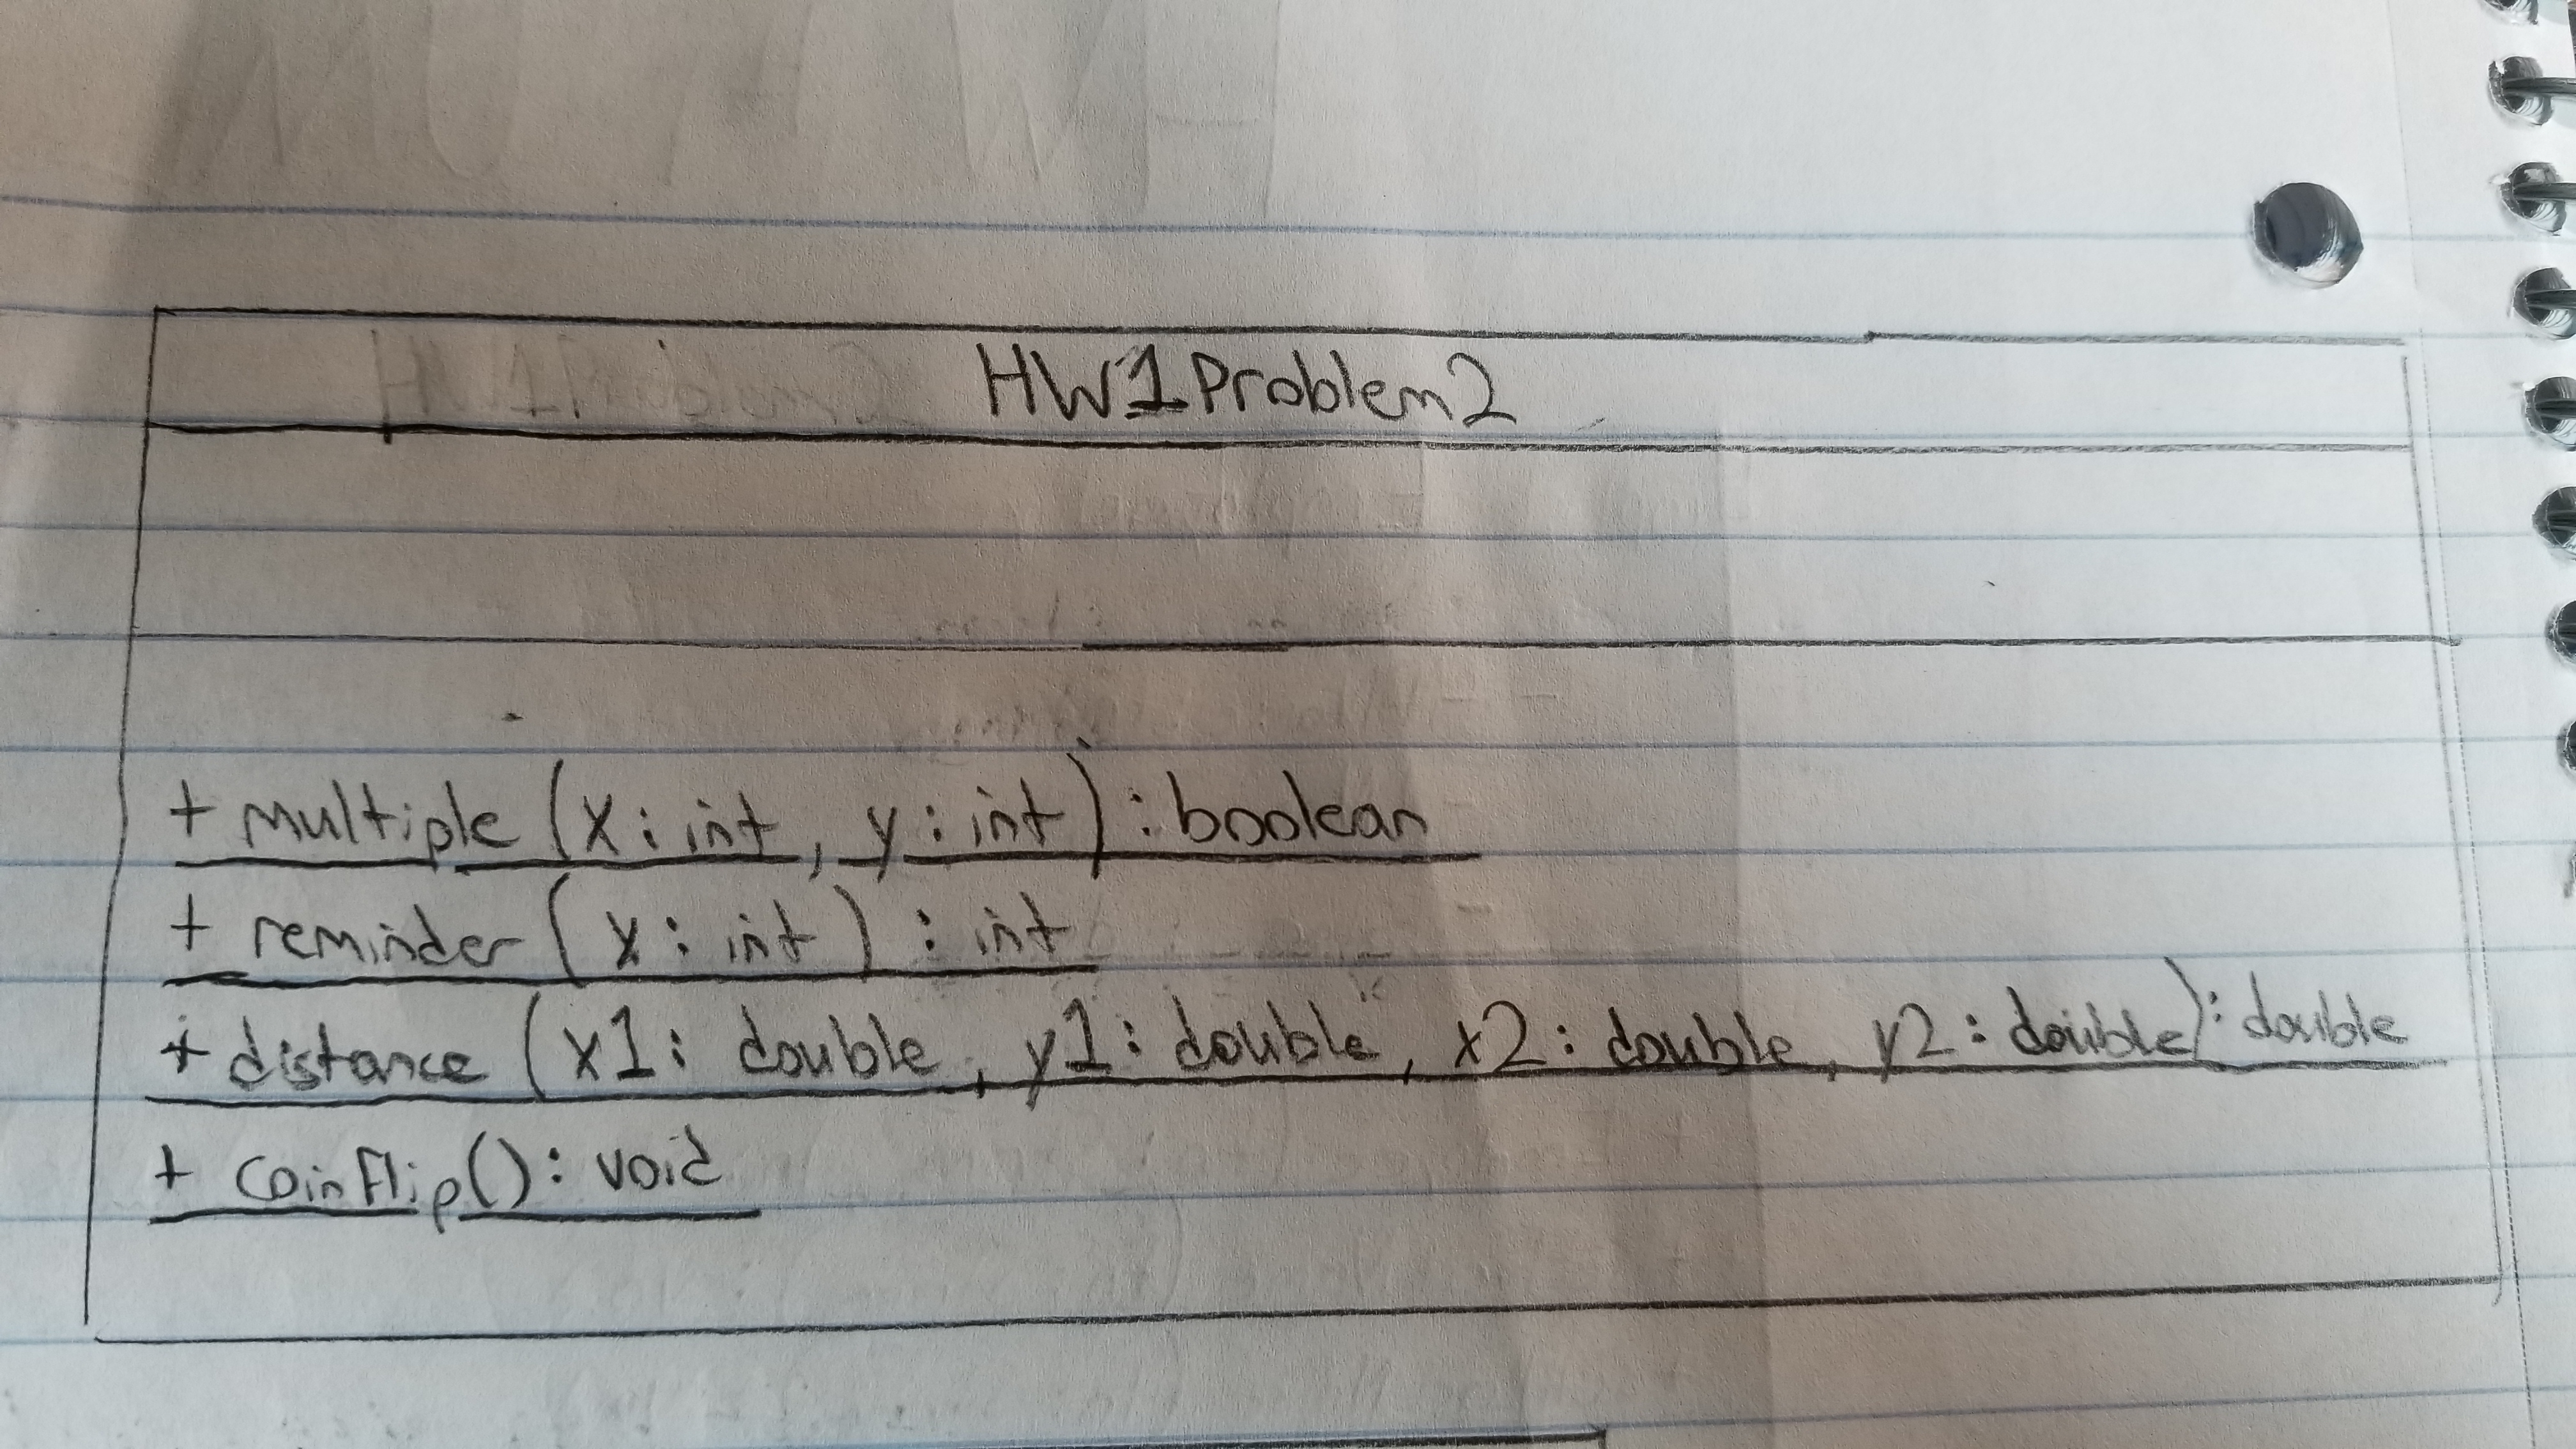 HW1Problem2
+ multiple (x: int, y: int): boolean
+ reminder (x: int) : int
+ distance (x1: double, y1: double, x2: double, y2: double): double
+ coinFlip(): void